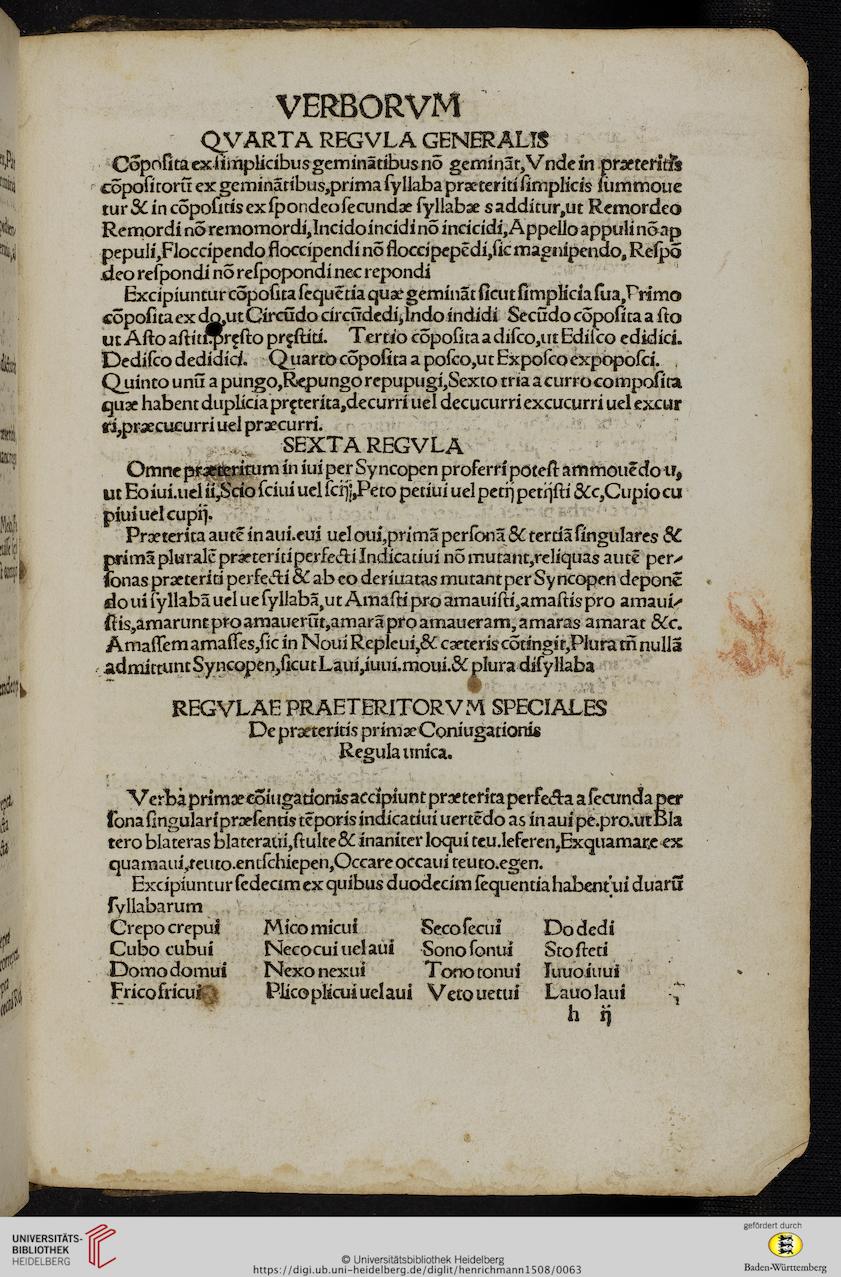 VERBORVM
QVARTA REGVLA GENERALIS
Cõpoſita ex ſimplicibus geminãtibus nõ geminãt, Vnde in præteritis
cõpoſitorũ ex geminãtibus, prima ſyllaba præteriti ſimplicis ſummoue
tur & in cõpoſitis ex ſpondeo ſecundæ ſyllabæ s additur, ut Remordeo
Remordi nõ remomordi, Incido incidi nõ incicidi, Appello appuli nõ ap
pepuli, Floccipendo floccipendi nõ floccipepẽdi, ſic magnipendo, Reſpõ
deo reſpondi nõ reſpopondi nec repondi
Excipiuntur cõpoſita ſequẽtia quæ geminãt ſicut ſimplicia ſua, Primo
cõpoſita ex do, ut Circũdo circũdedi, Indo indidi Secũdo cõpoſita a ſto
ut Aſto aſtiti. pręſto pręſtiti. Tertio cõpoſita a diſco, ut Ediſco edidici.
Dediſco dedidici. Quarto cõpoſita a poſco, ut Expoſco expopoſci.
Quinto unũ a pungo, Repungo repupugi, Sexto tria a curro compoſita
quæ habent duplicia pręterita, decurri uel decucurri excucurri uel excur
ri, præcucurri uel præcurri.
SEXTA REGVLA
Omne præteritum in iui per Syncopen proferri poteſt ammouẽdo u,
ut Eo iui. uel ii, Scio ſciui uel ſcij, Peto petiui uel petij petijſti &c, Cupio cu
piui uel cupij.
Præterita autẽ in aui. eui uel oui, primã perſonã & tertiã ſingulares &
primã pluralẽ præteriti perfecti Indicatiui nõ mutant, reliquas autẽ per⸗
ſonas præteriti perfecti & ab eo deriuatas mutant per Syncopen deponẽ
do ui ſyllabã uel ue ſyllabã, ut Amaſti pro amauiſti, amaſtis pro amaui⸗
ſtis, amarunt pro amauerũt, amarã pro amaueram, amaras amarat &c.
Amaſſem amaſſes, ſic in Noui Repleui, & cæteris cõtingit, Plura tñ nullã
admittunt Syncopen, ſicut Laui, iuui. moui. & plura diſyllaba
REGVLAE PRAETERITORVM SPECIALES
De præteritis primæ Coniugationis
Regula unica.
Verba primæ cõiugationis accipiunt præterita perfecta a ſecunda per
ſona ſingulari præſentis tẽporis indicatiui uertẽdo as in aui pe. pro. ut Bla
tero blateras blateraui, ſtulte & inaniter loqui teu. leferen, Exquamare ex
quamaui, teuto. entſchiepen, Occare occaui teuto. egen.
Excipiuntur ſedecim ex quibus duodecim ſequentia habent ui duarũ
ſyllabarum
Crepo crepui Mico micui Seco ſecui Do dedi
Cubo cubui Neco cui uel aui Sono ſonui Sto ſteti
Domo domui Nexo nexui Tono tonui Iuuo iuui
Frico fricui Plico plicui uel aui Veto uetui Lauo laui
h ij
UNIVERSITÄTS-
BIBLIOTHEK
HEIDELBERG
© Universitätsbibliothek Heidelberg
https://digi.ub.uni-heidelberg.de/diglit/henrichmann1508/0063
gefördert durch
Baden-Württemberg